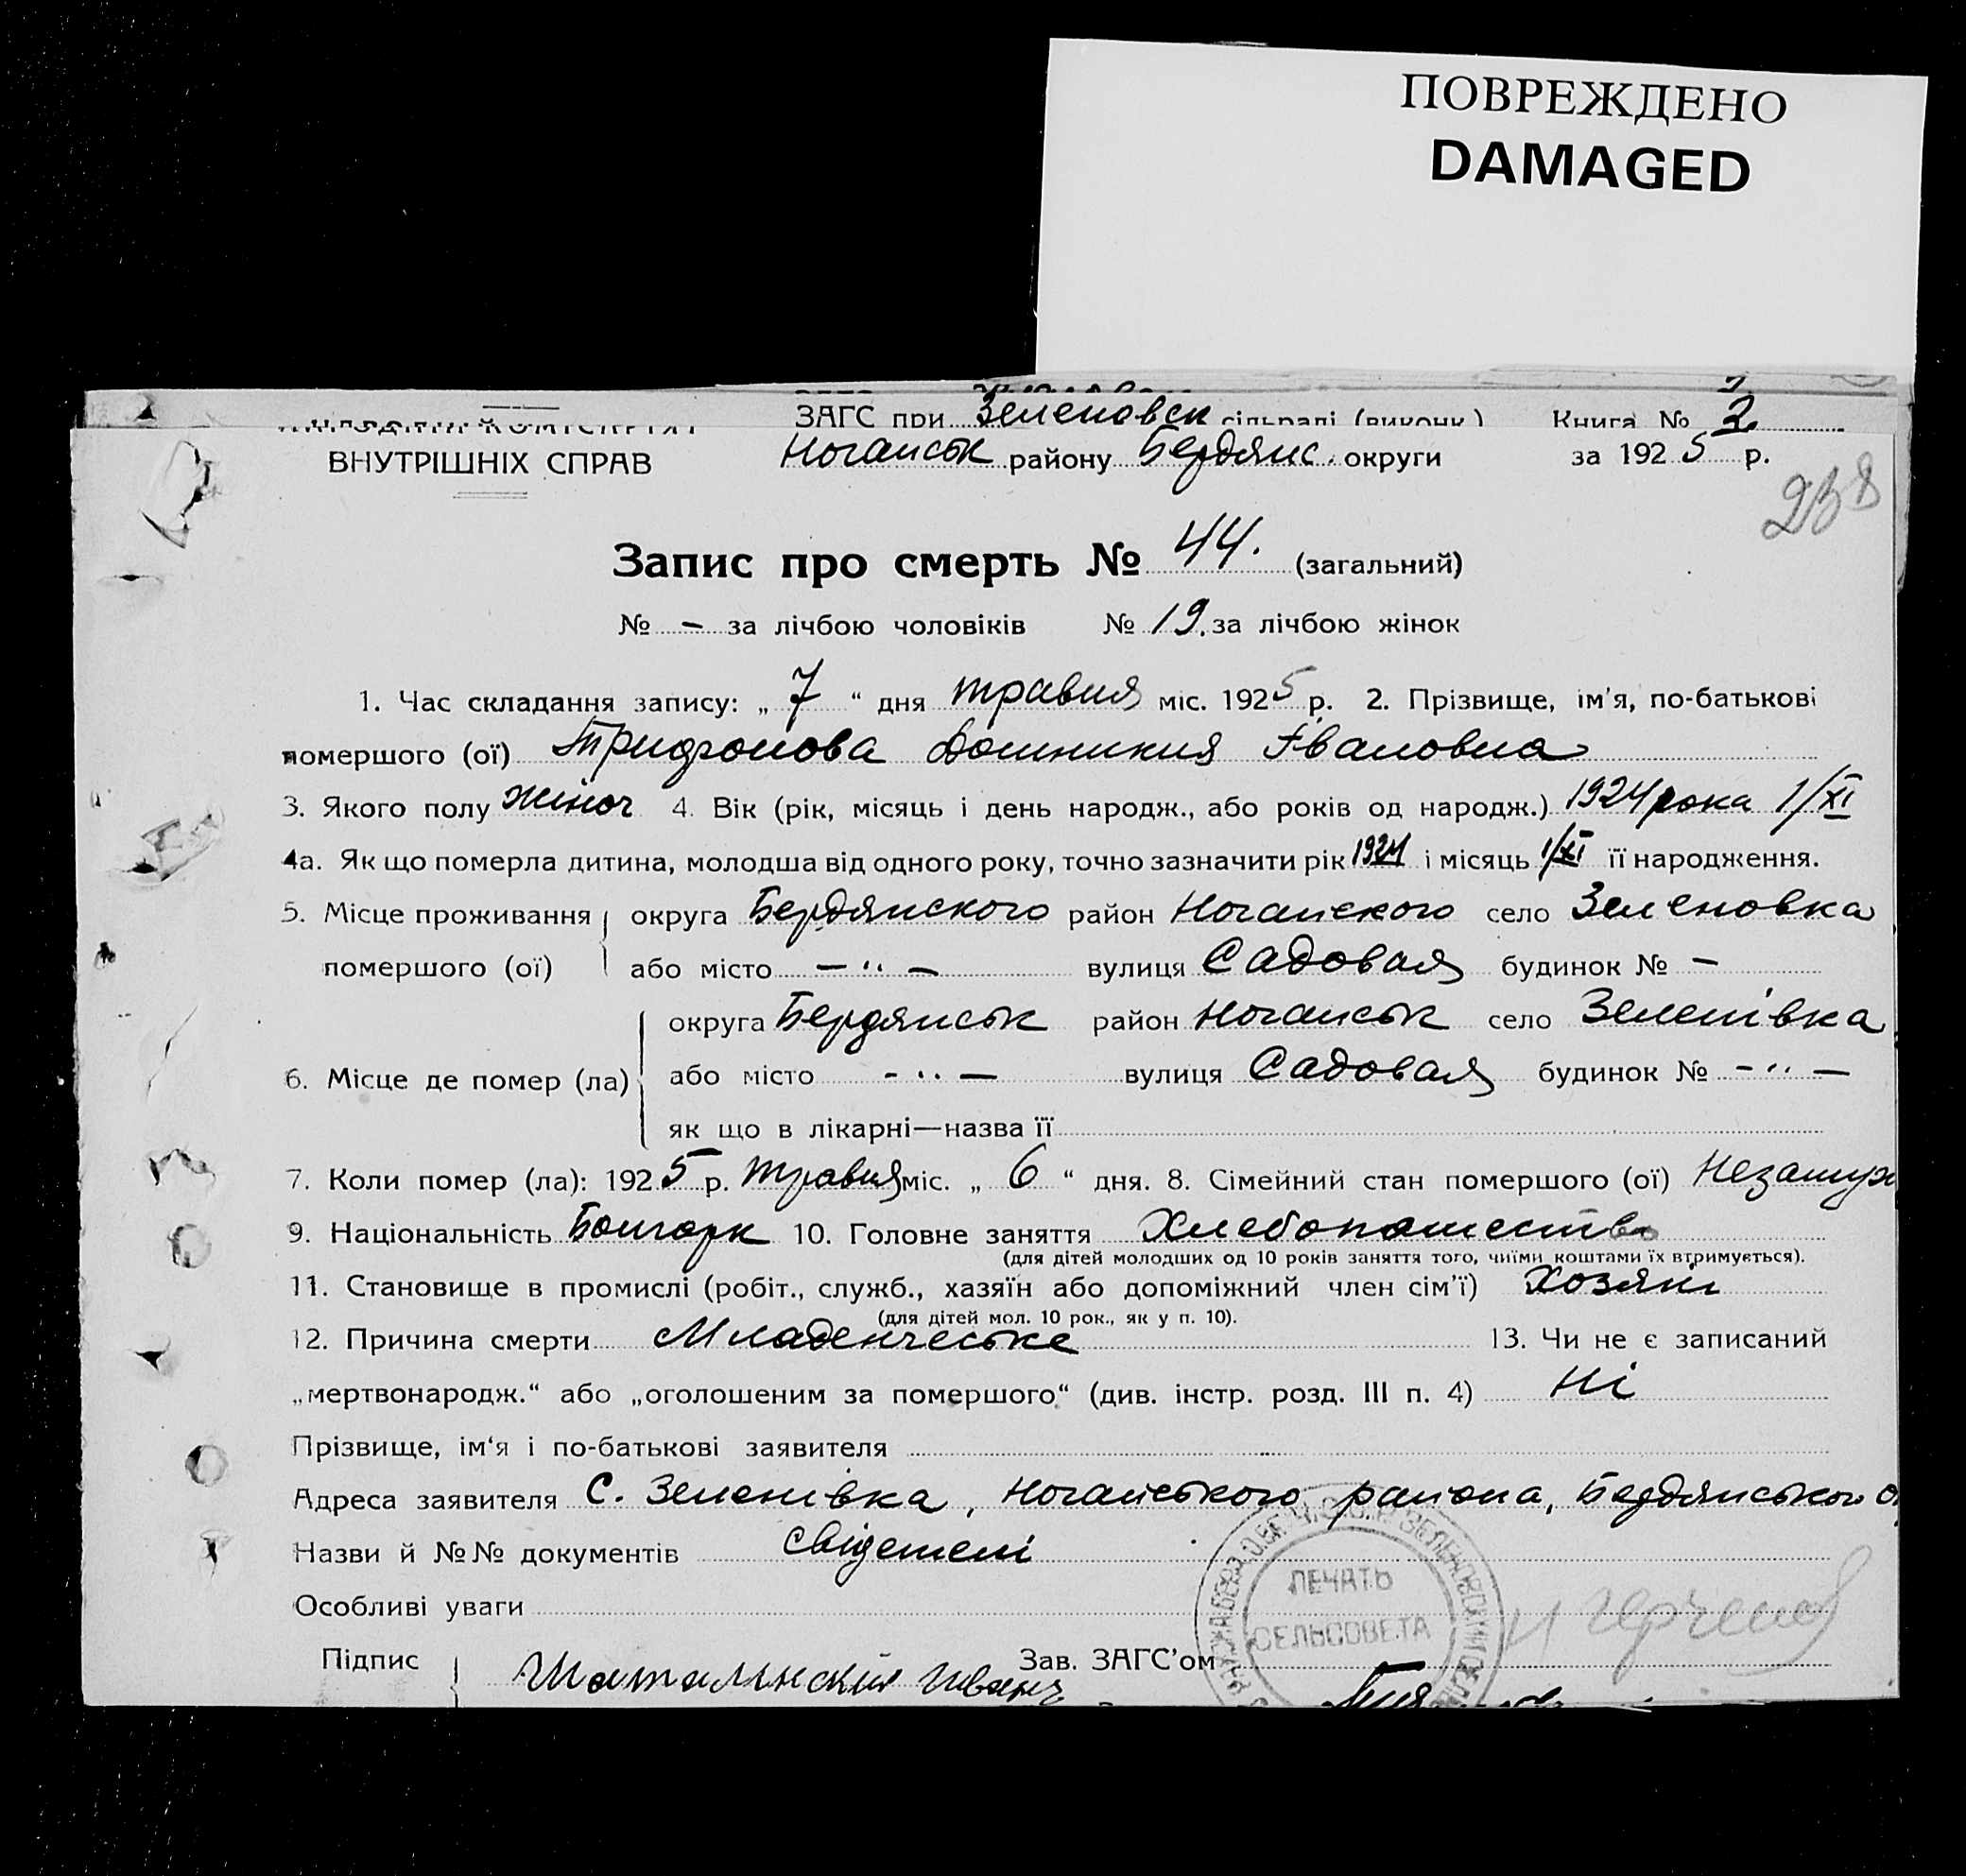 ПОВРЕЖДЕНО
DAMAGED
ЗАГС при Зеленовск сільраді (виконк.) Книга № 2
ВНУТРІШНІХ СПРАВ Ногайськ району Бердянс. округи за 1925 р.
238
Запис про смерть № 44. (загальний)
№ – за лічбою чоловіків № 19. за лічбою жінок
1. Час складання запису: „ 7 “ дня травня міс. 1925 р. 2. Прізвище, ім'я, по-батькові
помершого (ої) Трифонова Домникия Івановна
3. Якого полу жіноч 4. Вік (рік, місяць і день народж., або років од народж.) 1924 рока 1/XI
4а. Як що померла дитина, молодша від одного року, точно зазначити рік 1924 і місяць 1/XI її народження.
5. Місце проживання округа Бердянского район Ногайского село Зеленовка
помершого (ої) або місто – „ – вулиця Садовая будинок № –
округа Бердянськ район Ногайськ село Зеленівка
6. Місце де помер (ла) або місто – „ – вулиця Садовая будинок № – „ –
як що в лікарні—назва її
7. Коли помер (ла): 1925 р. травня міс. „ 6 “ дня. 8. Сімейний стан помершого (ої) Незамуж
9. Національність Болгарк 10. Головне заняття Хлебопашество
(для дітей молодших од 10 років заняття того, чиїми коштами їх втримується).
11. Становище в промислі (робіт., служб., хазяїн або допоміжний член сім'ї) Хозяін
(для дітей мол. 10 рок., як у п. 10).
12. Причина смерти Младенчеське 13. Чи не є записаний
„мертвонародж.“ або „оголошеним за помершого“ (див. інстр. розд. III п. 4) Ні
Прізвище, ім'я і по-батькові заявителя
Адреса заявителя С. Зеленівка, Ногайського района, Бердянського о
Назви й №№ документів свідетелі
Особливі уваги
ПЕЧАТЬ
СЕЛЬСОВЕТА
Підпис Зав. ЗАГС'ом